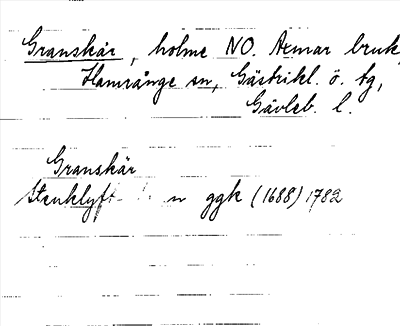 Granskär, holme NO. Axmar bruk,
Hamrånge sn, Gästrikl. ö. tg,
Gävleb. l.
Granskär
Stenklyft n ggk (1688) 1782